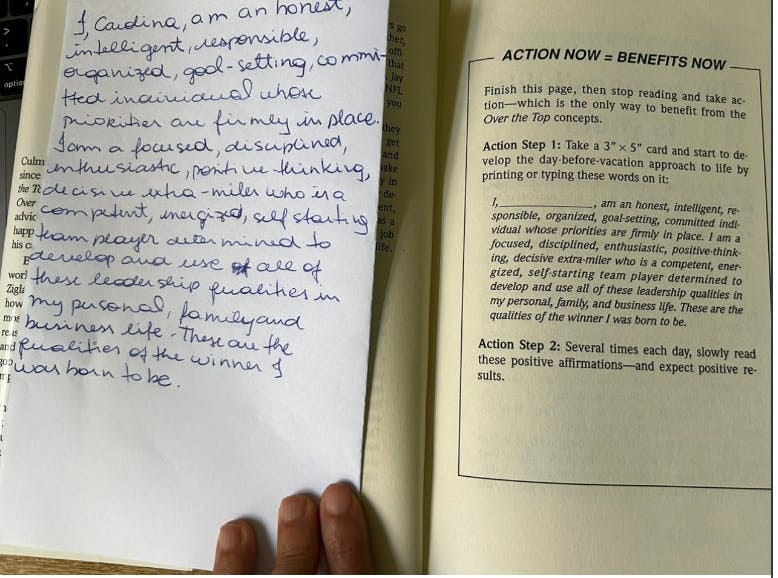 I, am an honest,
intelligent, responsible,
organized, goal-setting, commi-
tted individual whose
priorities are firmly in place.
I am a focused, disciplined,
enthusiastic, positive-thinking,
decisive extra-miler who is a
competent, energized, self starting
team player determined to
develop and use of all of
these leadership qualities in
my personal, family and
business life. These are the
qualities of the winner I
was born to be.
Culm
since
the
Over
advic
happ
his c
worl
Zigla
how
mos
and
goo
's go
her,
offi-
that
Jay
NFL
you
they
get
and
ake
y in
de-
ent,
as a
job
life.
optio
ACTION NOW = BENEFITS NOW
Finish this page, then stop reading and take ac-
tion—which is the only way to benefit from the
Over the Top concepts.
Action Step 1: Take a 3" × 5" card and start to de-
velop the day-before-vacation approach to life by
printing or typing these words on it:
I,______________, am an honest, intelligent, re-
sponsible, organized, goal-setting, committed indi-
vidual whose priorities are firmly in place. I am a
focused, disciplined, enthusiastic, positive-think-
ing, decisive extra-miler who is a competent, ener-
gized, self-starting team player determined to
develop and use all of these leadership qualities in
my personal, family, and business life. These are the
qualities of the winner I was born to be.
Action Step 2: Several times each day, slowly read
these positive affirmations—and expect positive re-
sults.